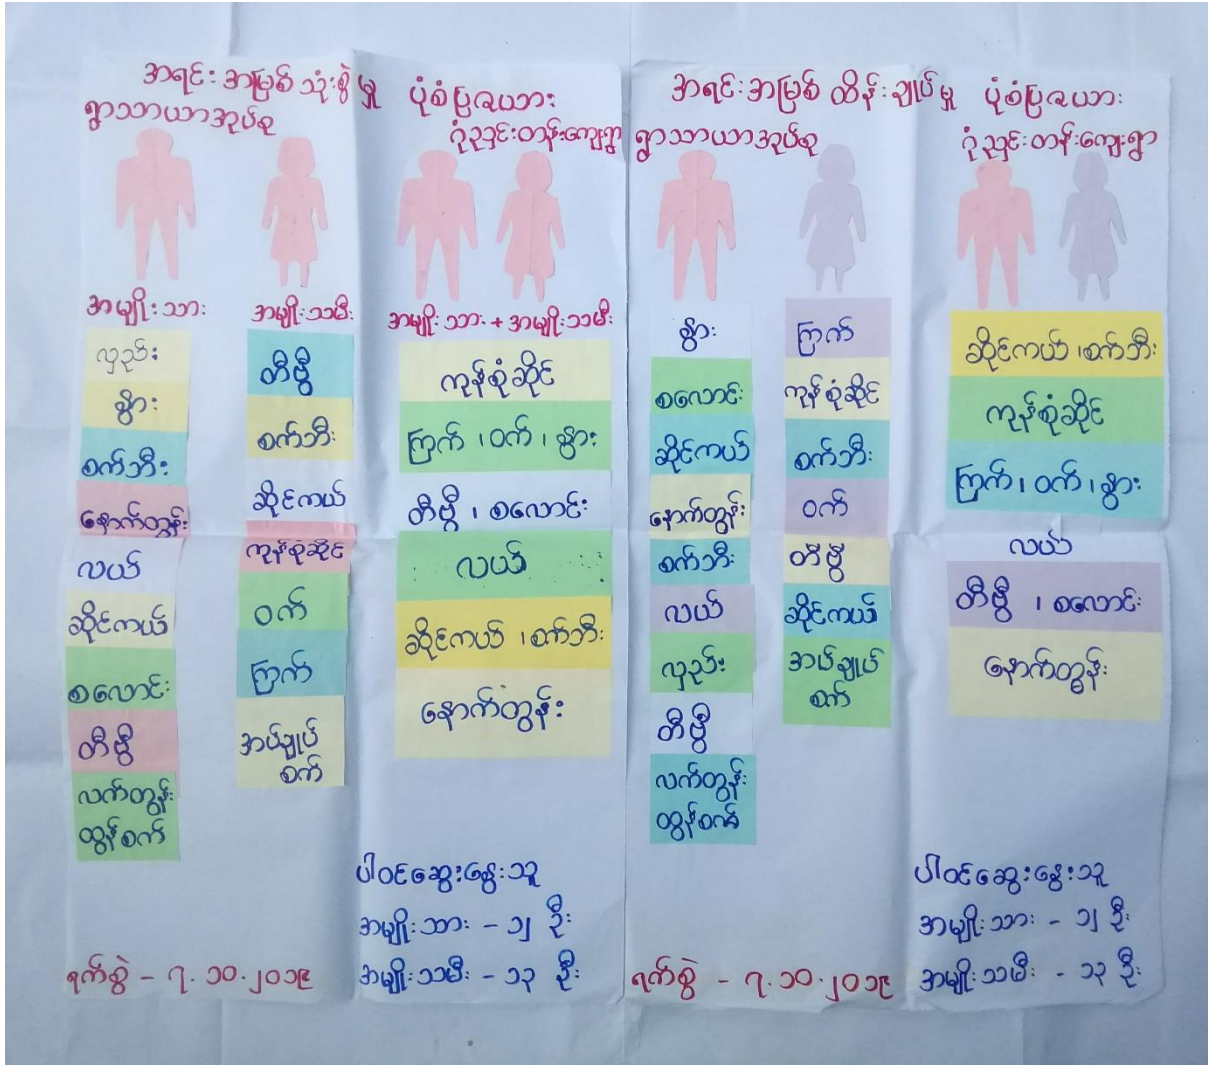 အရင်းအမြစ် သုံးစွဲမှု ပုံစံပြဇယား
ရွာသာယာအုပ်စု ဂုံညှင်းတန်းကျေးရွာ
အမျိုးသား
လှည်း
နွား
စက်ဘီး
နောက်တွန်း
လယ်
ဆိုင်ကယ်
စလောင်း
တီဗွီ
လက်တွန်း
ထွန်စက်
အမျိုးသမီး
တီဗွီ
စက်ဘီး
ဆိုင်ကယ်
ကုန်စုံဆိုင်
ဝက်
ကြက်
အပ်ချုပ်
စက်
အမျိုးသား + အမျိုးသမီး
ကုန်စုံဆိုင်
ကြက် ၊ ဝက် ၊ နွား
တီဗွီ ၊ စလောင်း
လယ်
ဆိုင်ကယ် ၊ စက်ဘီး
နောက်တွန်း
ပါဝင်ဆွေးနွေးသူ
အမျိုးသား - ၁၂ ဦး
အမျိုးသမီး - ၁၃ ဦး
ရက်စွဲ - ၇.၁၀.၂၀၁၉
အရင်းအမြစ် ထိန်းချုပ်မှု ပုံစံပြဇယား
ရွာသာယာအုပ်စု ဂုံညှင်းတန်းကျေးရွာ
နွား
စလောင်း
ဆိုင်ကယ်
နောက်တွန်း
စက်ဘီး
လယ်
လှည်း
တီဗွီ
လက်တွန်း
ထွန်စက်
ကြက်
ကုန်စုံဆိုင်
စက်ဘီး
ဝက်
တီဗွီ
ဆိုင်ကယ်
အပ်ချုပ်
စက်
ဆိုင်ကယ် ၊ စက်ဘီး
ကုန်စုံဆိုင်
ကြက် ၊ ဝက် ၊ နွား
လယ်
တီဗွီ ၊ စလောင်း
နောက်တွန်း
ပါဝင်ဆွေးနွေးသူ
အမျိုးသား - ၁၂ ဦး
အမျိုးသမီး - ၁၃ ဦး
ရက်စွဲ - ၇.၁၀.၂၀၁၉